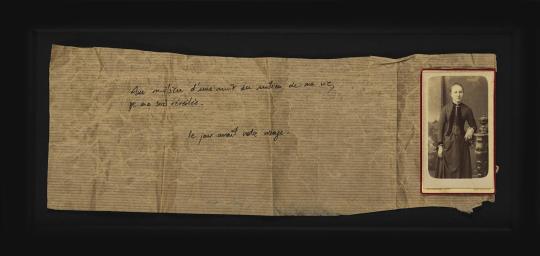 Au milieu d'une nuit au milieu de ma vie,
je me suis réveillée.
le jour avait votre visage.